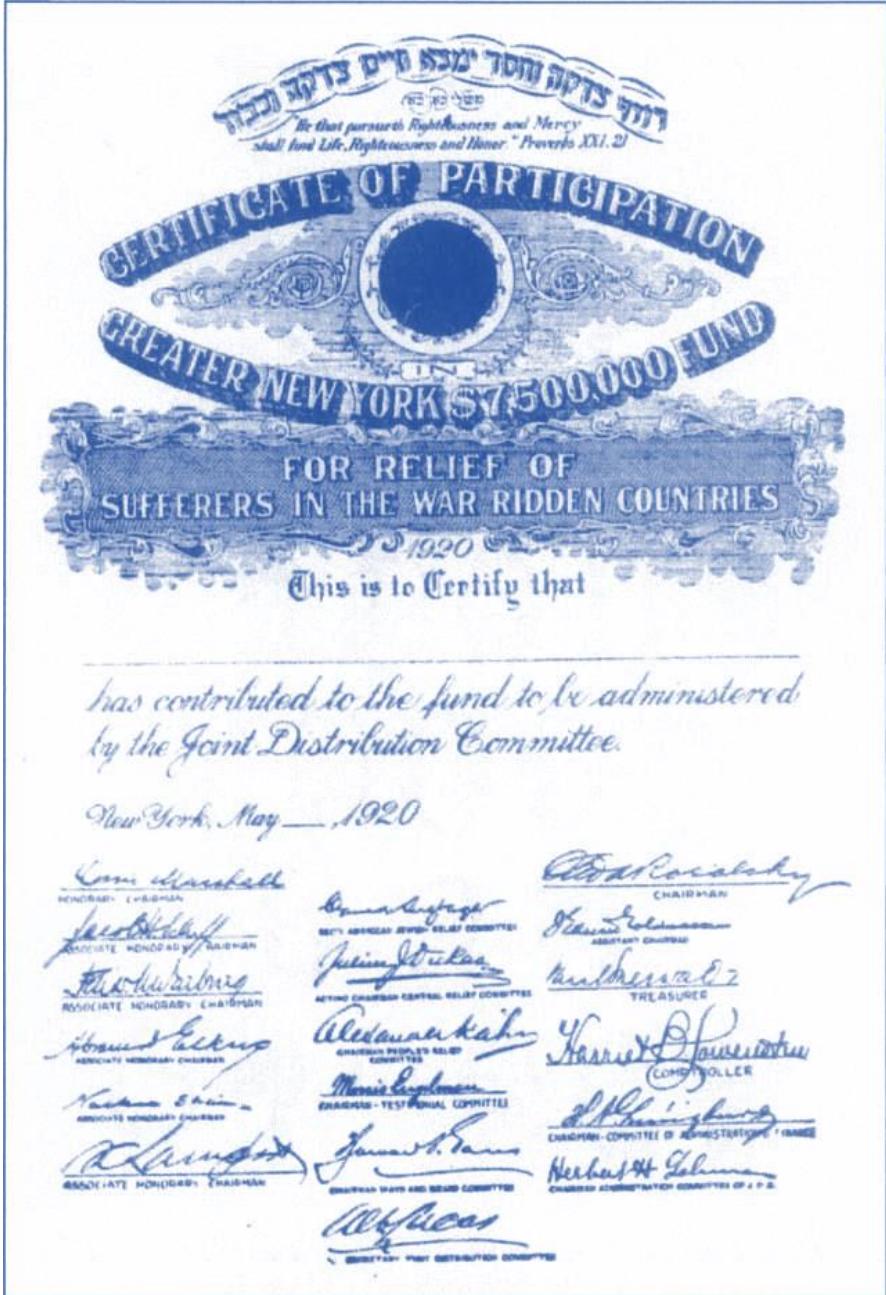 רודף צדקה וחסד ימצא חיים צדקה וכבוד
משלי כא׳ כא׳
"He that pursueth Righteousness and Mercy
shall find Life, Righteousness and Honor." Proverbs XXI. 21
CERTIFICATE OF PARTICIPATION
IN
GREATER NEW YORK $7,500,000 FUND
FOR RELIEF OF
SUFFERERS IN THE WAR RIDDEN COUNTRIES
1920
This is to Certify that
has contributed to the fund to be administered
by the Joint Distribution Committee.
New York, May ___, 1920
Louis Marshall
HONORARY CHAIRMAN
Jacob H. Schiff
ASSOCIATE HONORARY CHAIRMAN
Felix M. Warburg
ASSOCIATE HONORARY CHAIRMAN
Abram I. Elkus
ASSOCIATE HONORARY CHAIRMAN
ASSOCIATE HONORARY CHAIRMAN
ASSOCIATE HONORARY CHAIRMAN
AMERICAN JEWISH RELIEF COMMITTEE
Julius J. Dukas
ACTING CHAIRMAN CENTRAL RELIEF COMMITTEE
Alexander Kahn
CHAIRMAN PEOPLE'S RELIEF
COMMITTEE
Morris Engelman
CHAIRMAN - TESTIMONIAL COMMITTEE
CHAIRMAN WAYS AND MEANS COMMITTEE
Alb Lucas
SECRETARY JOINT DISTRIBUTION COMMITTEE
Otto A Rosalsky
CHAIRMAN
ASSISTANT CHAIRMAN
TREASURER
Harriet B. Lowenstein
COMPTROLLER
CHAIRMAN - COMMITTEE OF ADMINISTRATION & FINANCE
Herbert H Lehman
CHAIRMAN ADMINISTRATION COMMITTEE OF J. D. C.